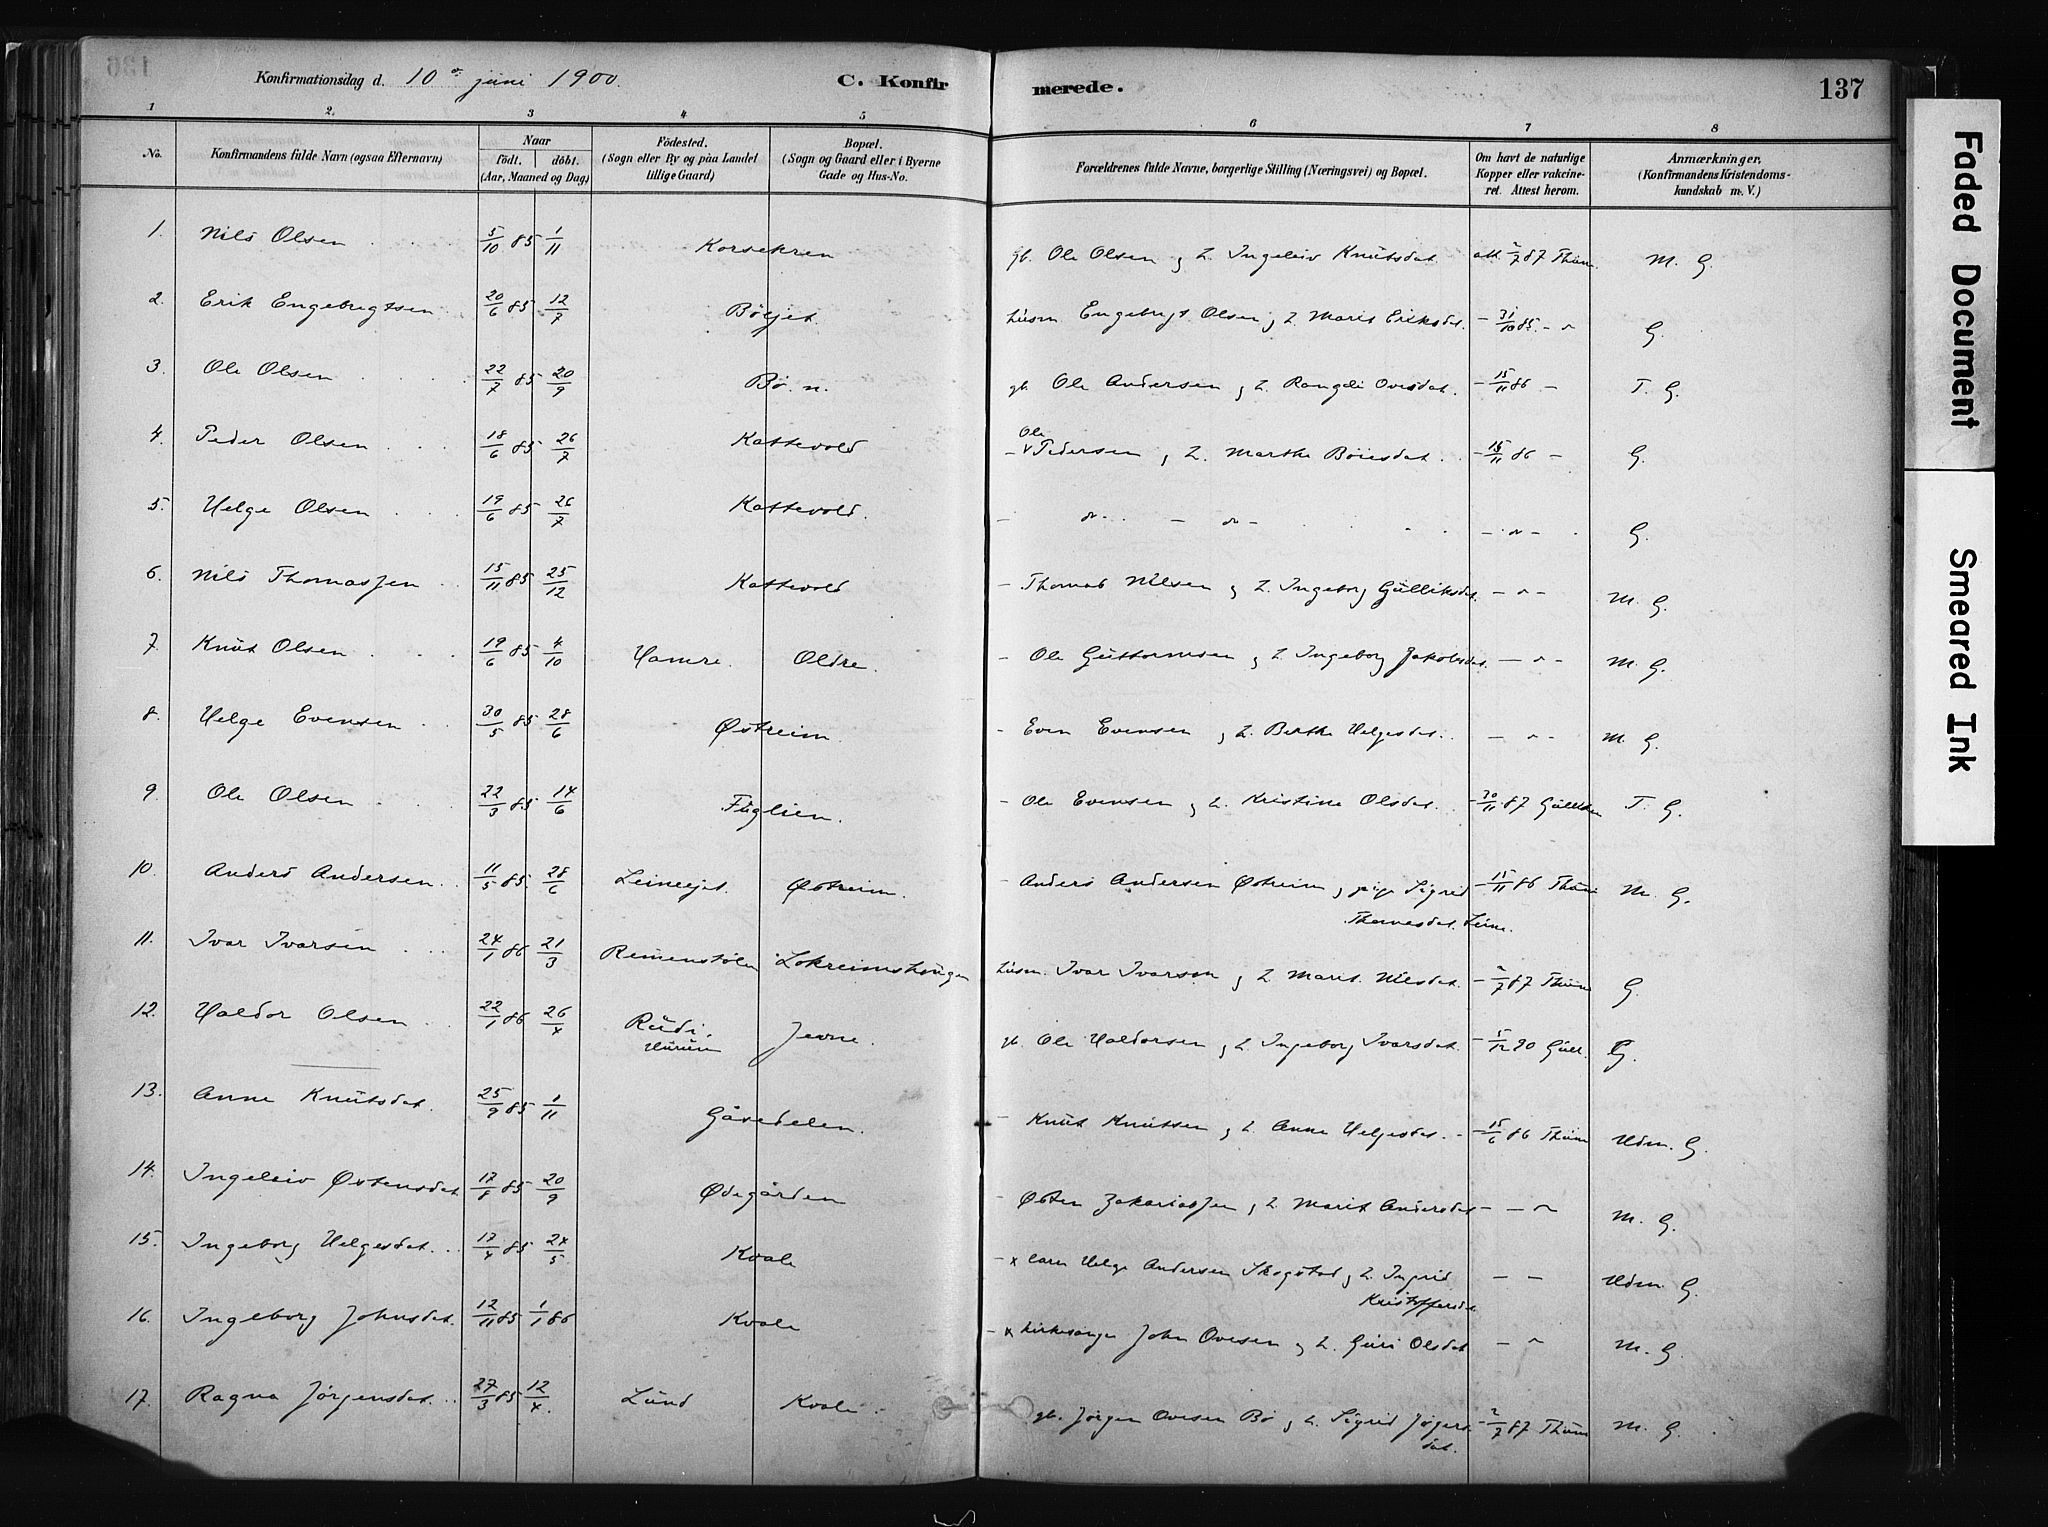 136
Konfirmationsdag d. 10de juni 1900.
C. Konfirmerede.
137
1 2. 3 4 5 6 7 8
No.
Konfirmandens fulde Navn (ogsaa Efternavn)
Naar
födt. döbt.
(Aar, Maaned og Dag)
Födested.
(Sogn eller By og paa Landet tillige Gaard)
Bopæl.
(Sogn og Gaard eller i Byerne Gade og Hus-No.
Forældrenes fulde Navne, borgerlige Stilling (Næringsvei) og Bopæl.
Om havt de naturlige Kopper eller vakcineret. Attest herom.
Anmærkninger.
(Konfirmandens Kristendomskundskab m. V.)
1. Nils Olsen 5/10 85 1/11 Korsekren gb. Ole Olsen og h. Ingeleiv Knutsdat. att. 2/7 87 Thüm. M. G.
2. Erik Engebregtsen 20/6 85 12/7 Böejet. husm Engebregt Olsen og h. Marit Eriksdat. - 31/10 85. - G.
3. Ole Olsen 22/7 85 20/9 Bø. n. gb. Ole Andersen og h. Rangdi Ovesdat. - 15/11 86 - T. G.
4. Peder Olsen 18/6 85 26/7 Kattevold - Ole Pedersen og h. Marthe Böiesdat. - 15/11 86 - G.
5. Helge Olsen 19/6 85 26/7 Kattevold. - G.
6. Nils Thomassen 15/11 85 25/12 Kattevold - Thomas Nilsen og h. Ingeborg Gulliksdat. M. G.
7. Knut Olsen 19/6 85 4/10 Hamre. Oldre. - Ole Guttormsen og h. Ingeborg Jakobsdat. M. G.
8. Helge Evensen 30/5 85 28/6 Østreim. - Even Evensen og h. Berthe Helgesdat. M. G.
9. Ole Olsen 22/3 85 14/6 Fuglien. - Ole Evensen og h. Kristine Olsdat. - 30/11 87 T. G.
10. Anders Andersen 11/5 85. 28/6 Leineejet. Østreim. - Anders Andersen Østreim og pige Sigrid - 15/11 86 Thüm M. G.
Thomesdat. Leine.
11. Ivar Ivarsen 24/1 86 21/3 Reinenstølen Lokreimshaugen husm. Ivar Ivarson og h. Marit Nilsdat. - 2/7 87 Thüm G.
12. Haldor Olsen 22/1 86 26/4 Rudi, Jevne. gb. Ole Haldorsen og h. Ingeborg Ivarsdat. - 5/12 90 Gull. G.
Hurum
13. Anne Knutsdat. 25/9 85 1/11 Gåsedelen. - Knut Knutsen og h. Anne Helgesdat. - 15/6 86 Thüm Udm. G.
14. Ingeleiv Østensdat 17/8 85 20/9 Ødegården - Østen Zakariassen og h. Marit Andersdat M. G.
15. Ingeborg Helgesdat. 17/4 85 24/5 Kvale - x Helge Andersen Skogstad og h. Ingrid Udm. G.
Kristoffersdat.
16. Ingeborg Johnsdat. 12/11 85 1/1 86 Kvale - x kirkesanger John Ovesen og h. Guri Olsdat M. G.
17. Ragna Jørgensdat. 27/3 85 12/4. Lund Kvale. gb. Jørgen Ovesen Bø og h. Sigrid Jøgers- - 2/7 87 Thüm M. G.
dat.
Faded Document
Smeared Ink